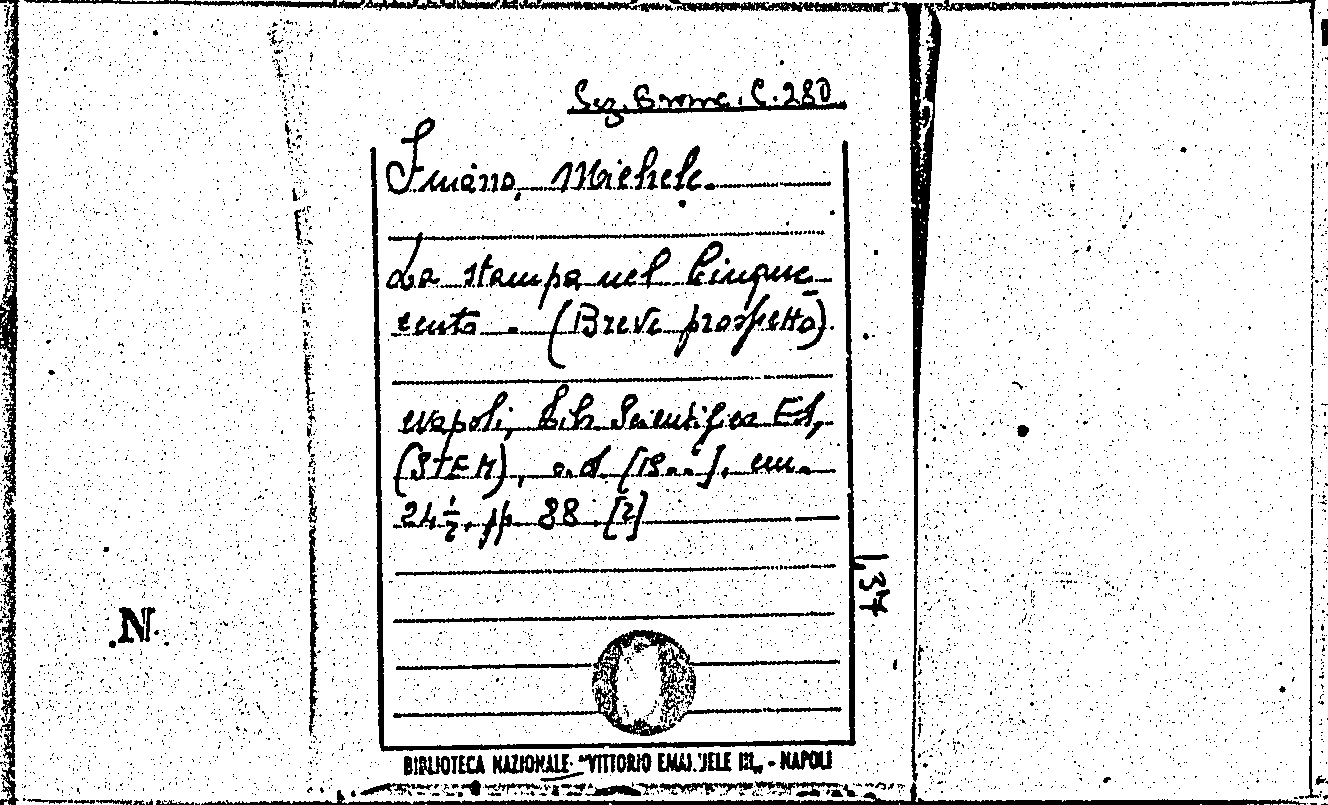 Sez. Branc. C. 280
Fuiano, Michele.
La stampa nel Cinque
cento. (Breve prospetto).
Napoli, Lib Scientifica Ed,
(STEM), s. d. [19..], cm.
24 1/2, pp. 88. [2]
1,34
N.
BIBLIOTECA NAZIONALE "VITTORIO EMANUELE III" - NAPOLI